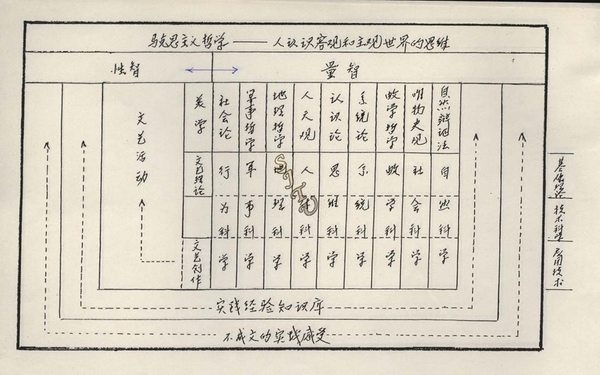 马克思主义哲学——人认识客观和主观世界的思维
性智
量智
文艺活动
美学
社会论
军事哲学
地理哲学
人天观
认识论
系统论
数学哲学
唯物史观
自然辩证法
文艺理论
行为科学
军事科学
地理科学
人体科学
思维科学
系统科学
数学科学
社会科学
自然科学
文艺创作
基础理论
技术科学
应用技术
实践经验知识库
不成文的实践感受
SJTU